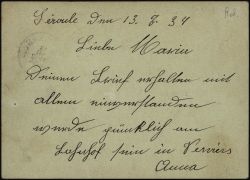 Siroule den 13. 8. 34
Liebe Maria
Deinen Brief erhalten mit
allem einverstanden
werde pünklich am
Bahnhof sein in Verviers
Anna